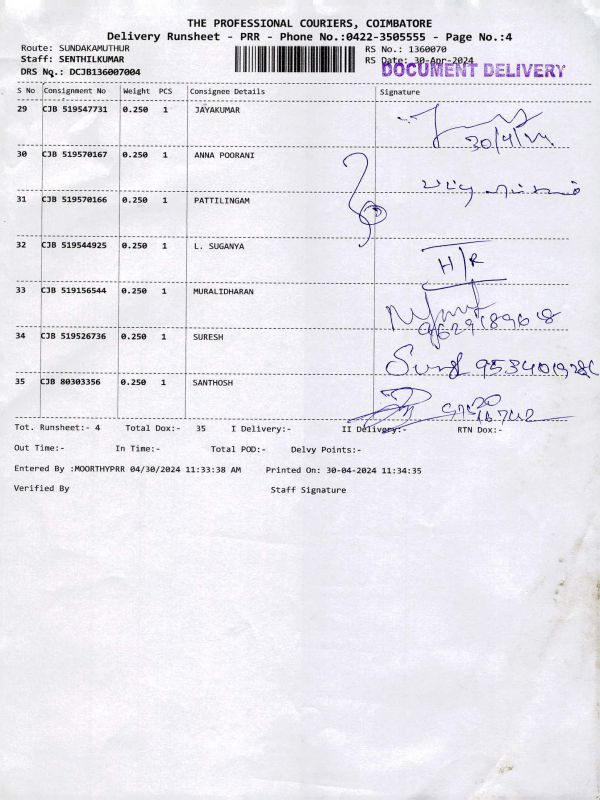 THE PROFESSIONAL COURIERS, COIMBATORE
Delivery Runsheet - PRR - Phone No.:0422-3505555 - Page No.:4
Route: SUNDAKAMUTHUR RS No.: 1360070
Staff: SENTHILKUMAR RS Date: 30-Apr-2024
DRS No.: DCJB136007004 DOCUMENT DELIVERY
S No Consignment No Weight PCS Consignee Details Signature
29 CJB 519547731 0.250 1 JAYAKUMAR
30/4/24
30 CJB 519570167 0.250 1 ANNA POORANI
31 CJB 519570166 0.250 1 PATTILINGAM
32 CJB 519544925 0.250 1 L. SUGANYA
H/R
33 CJB 519156544 0.250 1 MURALIDHARAN
34 CJB 519526736 0.250 1 SURESH
35 CJB 80303356 0.250 1 SANTHOSH
Tot. Runsheet:- 4 Total Dox:- 35 I Delivery:- II Delivery:- RTN Dox:-
Out Time:- In Time:- Total POD:- Delvy Points:-
Entered By :MOORTHYPRR 04/30/2024 11:33:38 AM Printed On: 30-04-2024 11:34:35
Verified By Staff Signature